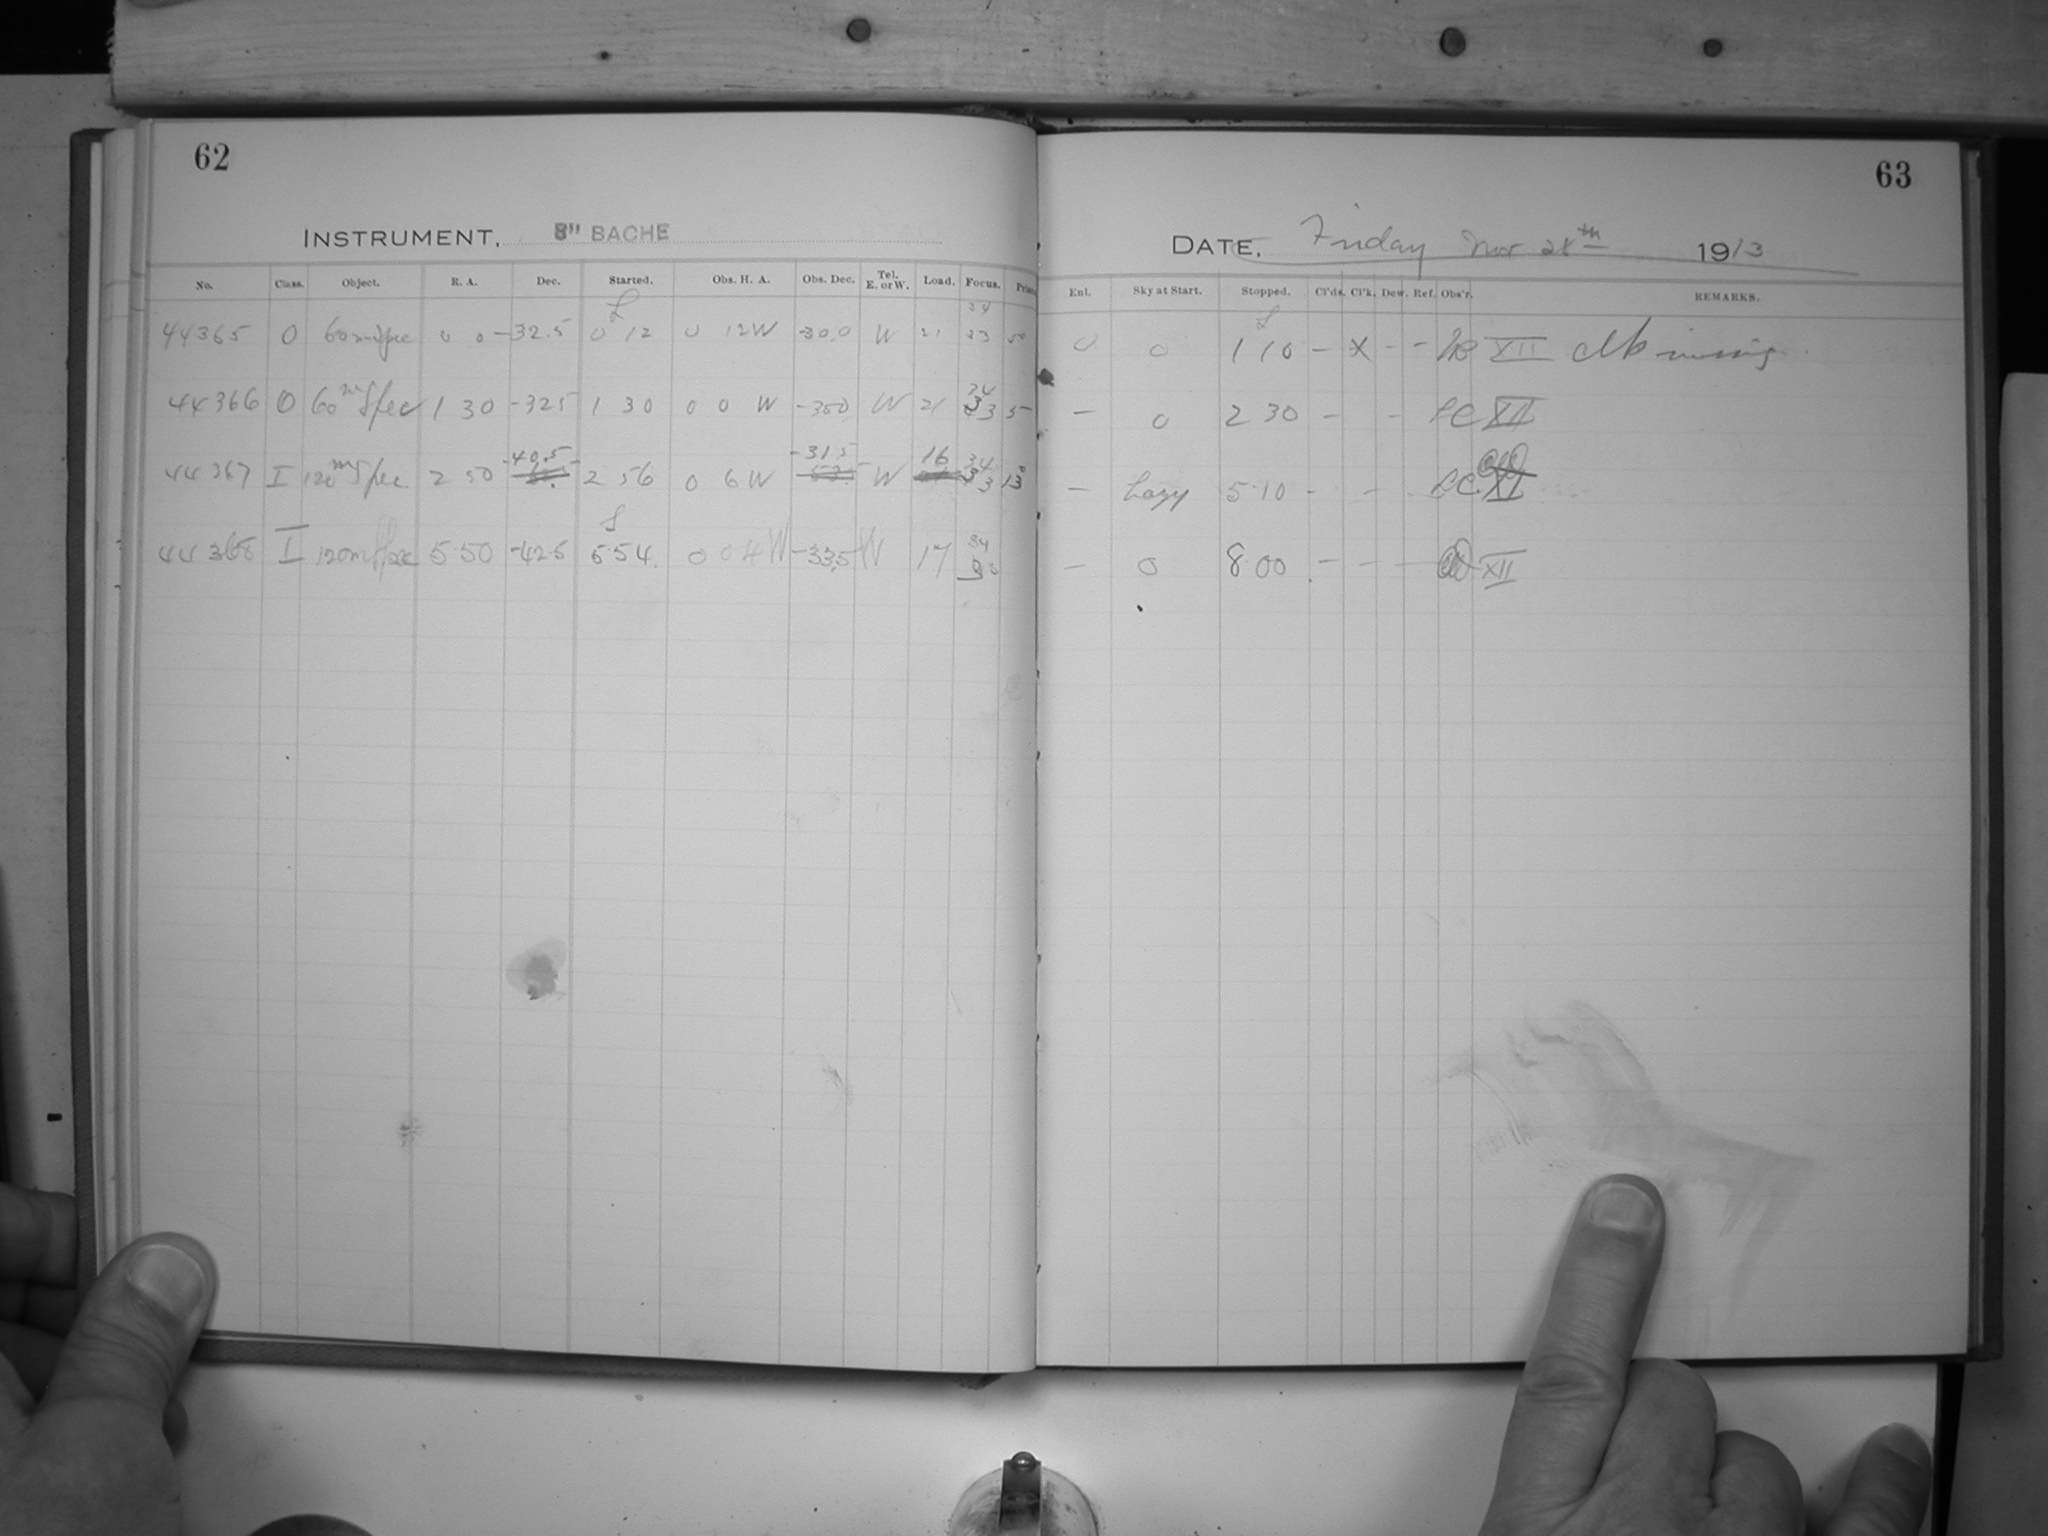 62
INSTRUMENT, 8" BACHE
No. Class. Object. R. A. Dec. Started. Obs. H. A. Obs. Dec. Tel. E. or W. Load. Focus. Prism
44365 0 60m Spec 0 0 -32.5 0 12 0 12W -30.0 W 21 34 33 50
44366 0 60m Spec 1 30 -325 1 30 0 0 W -300 W 21 34 33 5
44367 I 120m Spec 2 50 -40.5 2 56 0 6 W -31.5 W 16 34 33 13
44368 I 120m Spec 5.50 -42.5 5.54 0 04 W -33.5 W 17 34
63
DATE, Friday Nov 28th 1913
Enl. Sky at Start. Stopped. Cl'ds. Cl'k. Dew. Ref. Obs'r. REMARKS.
0 0 1 10 - X - - XII Clk missing.
- 0 2 30 - - LC XII
- hazy 5.10 - - LC XI
- 0 8.00 - - - XII